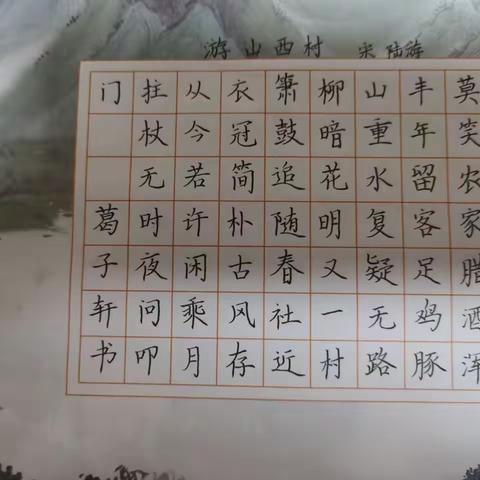 游山西村 宋 陆游
莫笑农家腊酒浑
丰年留客足鸡豚
山重水复疑无路
柳暗花明又一村
箫鼓追随春社近
衣冠简朴古风存
从今若许闲乘月
拄杖无时夜问叩
门
葛子轩书